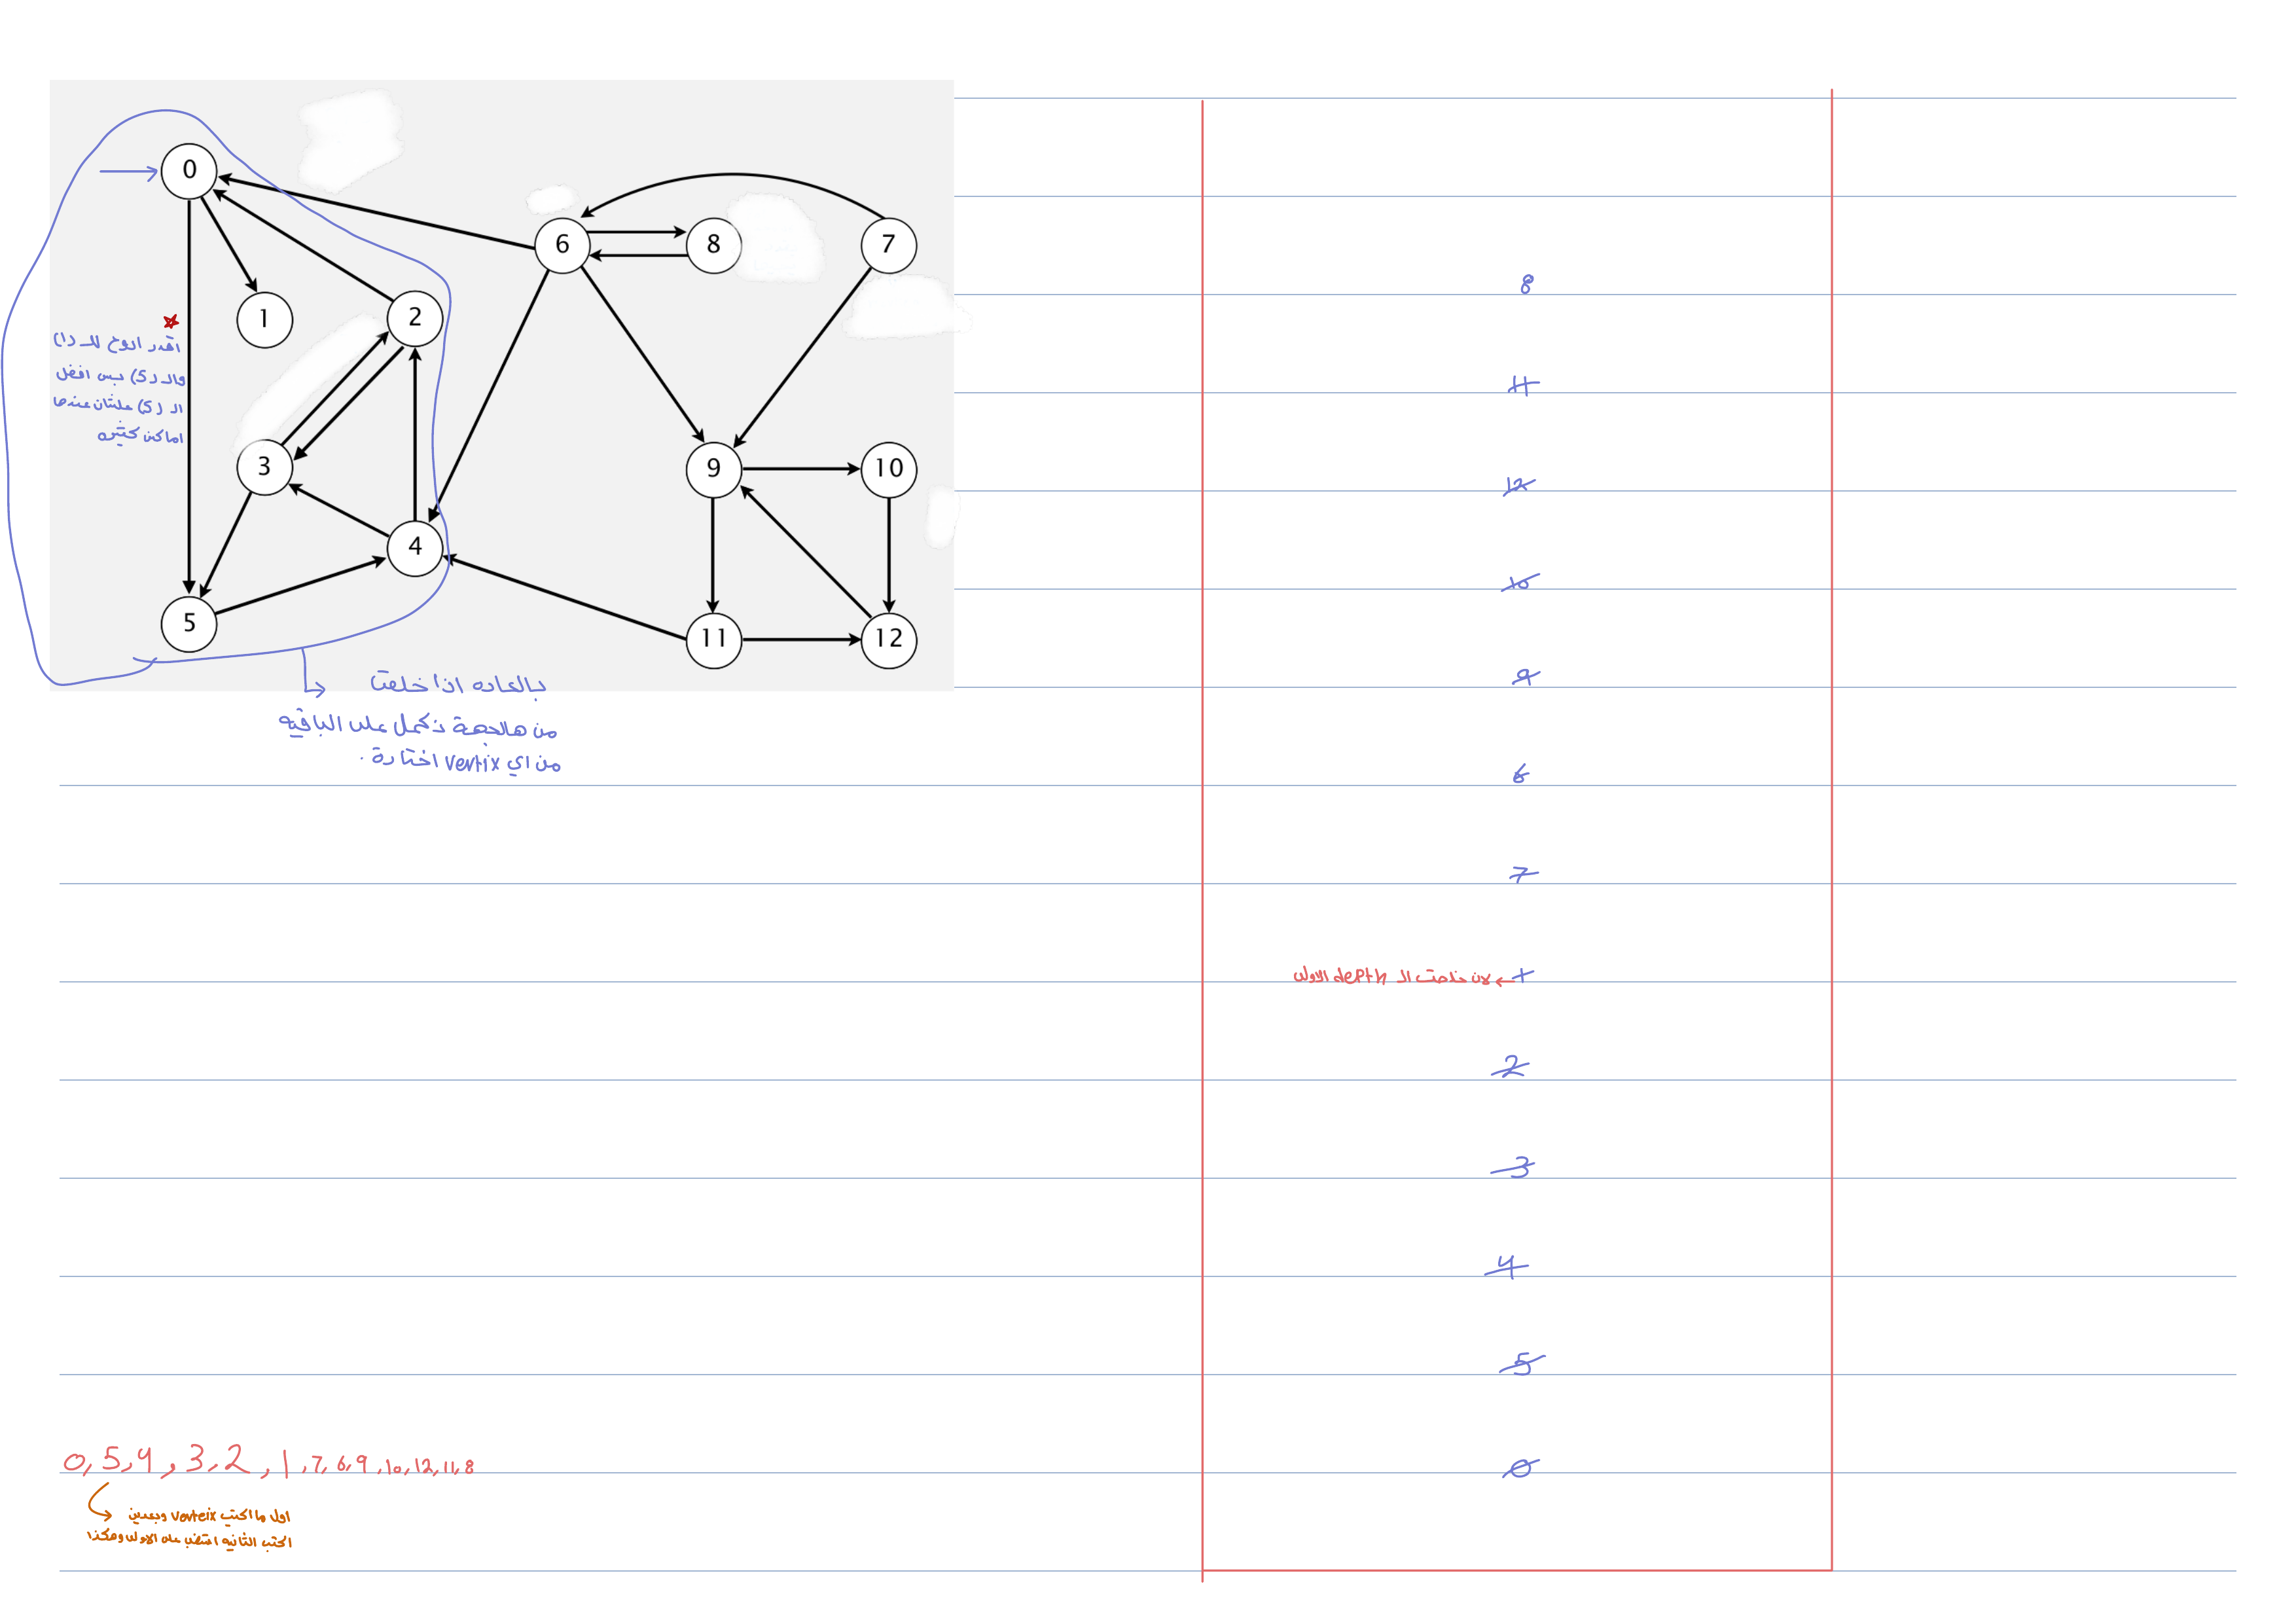 0
6
8
7
1
2
أقدر أروح للـ (1)
والـ (5) بس افضل
الـ (5) علشان عندها
اماكن كثيره
3
9
10
4
5
11
12
بالعاده اذا خلصت
من هالجهة نكمل على الباقيه
من اي vertix اختارة .
8
11
12
10
9
6
7
1 ← لان خلصت الـ depth الاولى
2
3
4
5
0
0, 5, 4, 3, 2, 1, 7, 6, 9, 10, 12, 11, 8
اول ما اكتب verteix وبعدين
اكتب الثانيه اشطب على الاولى وهكذا